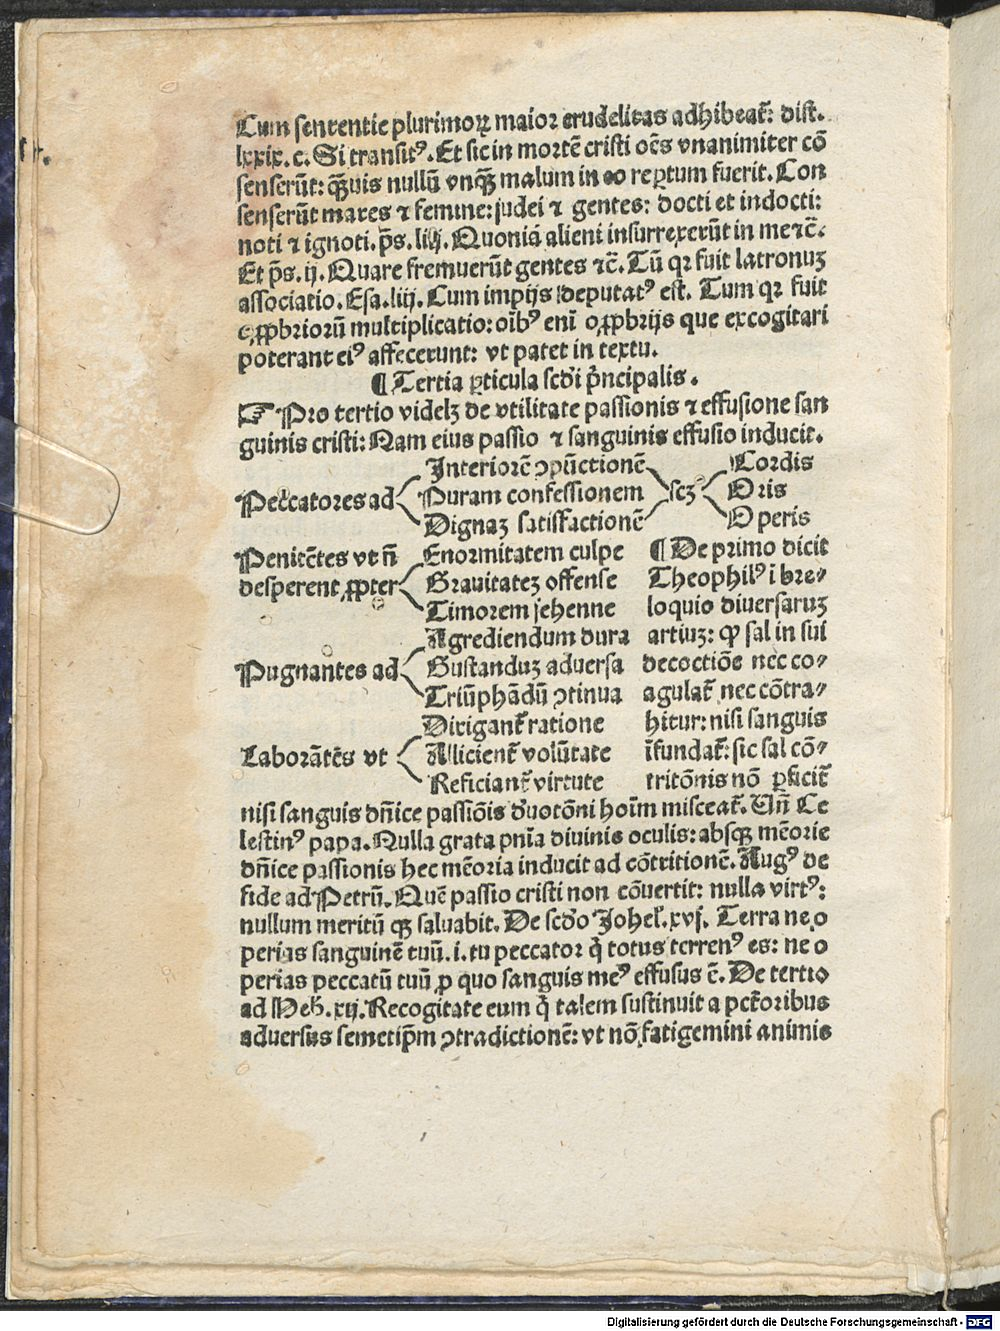 Cum sententie plurimoꝝ maior crudelitas adhibeat᷑: dist.
lxxix. c. Si transitꝰ. Et sic in mortē cristi oēs vnanimiter cō
senserūt: qͣ̄uis nullū vnqͣ̄ malum in eo reꝑtum fuerit. Con
senserūt mares ⁊ femine: judei ⁊ gentes: docti et indocti:
noti ⁊ ignoti. p̄s. liij. Quoniā alieni insurrexerūt in me ⁊c̄.
Et p̄s. ij. Quare fremuerūt gentes ⁊c̄. Tū qꝛ fuit latronuꝫ
associatio. Esa. liij. Cum impijs deputatꝰ est. Tum qꝛ fuit
oꝓpbriorū multiplicatio: oībꝰ enī oꝓpbrijs que excogitari
poterant eiꝰ affecerunt: vt patet in textu.
¶ Tertia ꝑticula scd̓i pͥncipalis.
☞ Pro tertio videlꝫ de vtilitate passionis ⁊ effusione san
guinis cristi: Nam eius passio ⁊ sanguinis effusio inducit.
Peccatores ad
Interiorē ↄpūctionē
Puram confessionem
Dignaꝫ satisfactionē
scꝫ
Cordis
Oris
Operis
Penitētes vt n̄
desperent ꝓpter
Enormitatem culpe
Grauitateꝫ offense
Timorem jehenne
Pugnantes ad
Agrediendum dura
Gustanduꝫ aduersa
Triūphādū ↄtinua
Laborātēs vt
Dirigant᷑ ratione
Allicient᷑ volūtate
Reficiant᷑ virtute
¶ De primo dicit
Theophilꝰ i bre⸗
loquio diuersaruꝫ
artiuꝫ: ꝙ sal in sui
decoctiōe nec co⸗
agulat᷑ nec cōtra⸗
hitur: nisi sanguis
īfundat᷑: sic sal cō⸗
tritōnis nō ꝑficit᷑
nisi sanguis dn̄ice passiōis d̓uotōni hoīm misceat᷑. Vn̄ Ce
lestinꝰ papa. Nulla grata pn̄ia diuinis oculis: absqꝫ mēorie
dn̄ice passionis hec mēoria inducit ad cōtritionē. Augꝰ de
fide ad Petrū. Quē passio cristi non cōuertit: nulla virtꝰ:
nullum meritū qꝫ saluabit. De scd̓o Johel̓. xvj. Terra ne o
perias sanguinē tuū. i. tu peccator qͥ totus terrenꝰ es: ne o
perias peccatū tuū ꝓ quo sanguis meꝰ effusus ē. De tertio
ad Heb̓. xij. Recogitate eum qͥ talem sustinuit a pct̄oribus
aduersus semetip̄m ↄtradictionē: vt nō fatigemini animis
Digitalisierung gefördert durch die Deutsche Forschungsgemeinschaft - DFG